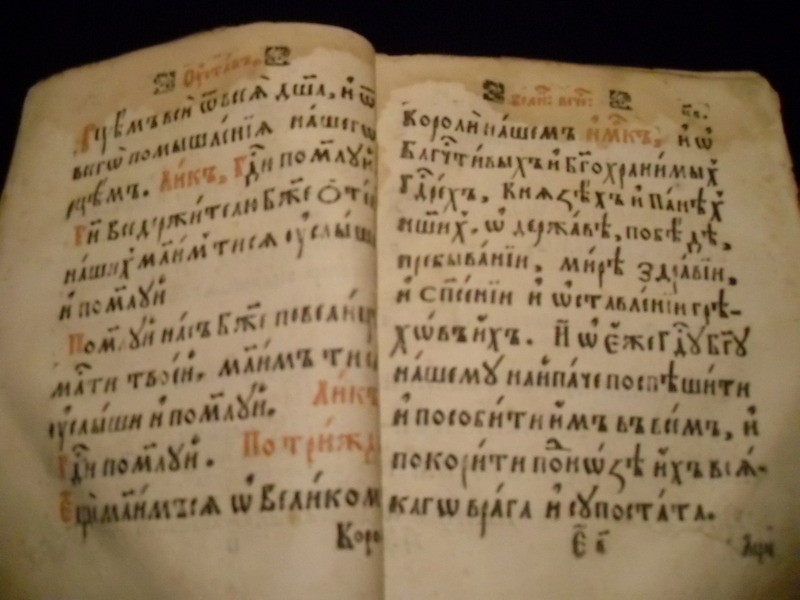 Оу҆ста́въ,
Рцемъ вси ѿ всеѧ̀ дш҃а̀, и҆ ѿ
всегѡ̀ помышле́нїѧ на́шегѡ
рцемъ. Ли́къ, Гдⷭ҇и поми́лꙋй
Гдⷭ҇и вседержи́телю бж҃е ѻ҆те́цъ
на́шихъ мл҃имъ тисѧ ᲂу҆слы́ши
и҆ поми́лꙋй
Поми́лꙋй на́съ бж҃е по вели́цей
млⷭ҇ти твое́й, мл҃имъ ти сѧ
ᲂу҆слы́ши и҆ поми́лꙋй. Ли́къ
Гдⷭ҇и поми́лꙋй. По три́жды
Е҆щѐ мл҃имъсѧ ѡ҆ вели́комъ
Коро
вели: вече:
Короли́ на́шемъ и҆́мⷬ҇къ, и҆ ѡ҆
Блгⷭ҇ти́выхъ и҆ бг҃охрани́мыхъ
Гдⷭ҇рехъ, Кнѧѕѣхъ и҆ Па́нѣхъ
и҆́шихъ, ѡ҆ держа́вѣ, побѣ́дѣ,
пребыва́нїи, ми́рѣ здра́вїи,
и҆ сп҃се́нїи и҆ ѡ҆ставле́нїи грѣ-
хѡ́въ и҆́хъ. И҆ ѡ҆ е҆́же гдⷭ҇ꙋ бг҃ꙋ
на́шемꙋ наи҆па́че поспѣши́ти
и҆ пособи́ти и҆̀мъ въ всѐмъ, и҆
покори́ти под̾ но́ѕѣ и҆́хъ всѧ́-
кагѡ врага̀ и҆ сꙋпоста́та.